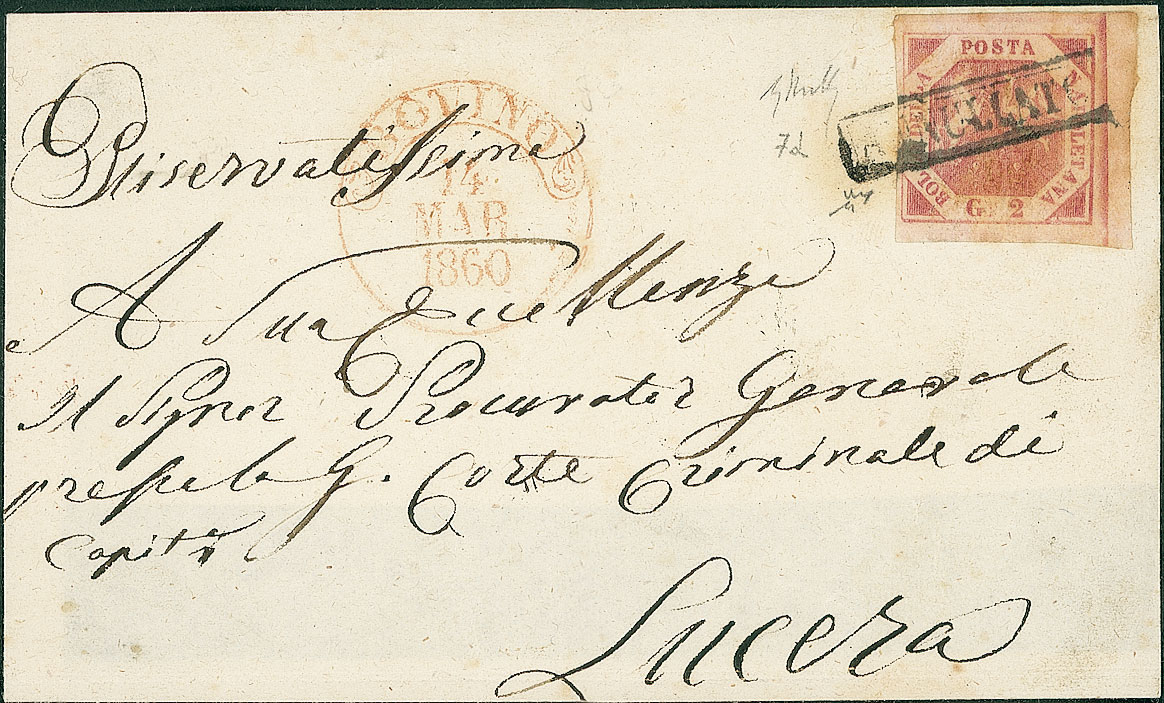 Riservatissima
A Sua Eccellenza
Il Signor Procurator Generale
presso la G. Corte Criminale di
Capita
Lucera
BOVINO
14
MAR
1860
POSTA
NAPOLETANA
BOLLO DELLA
G. 2
ANNULLATO
7d